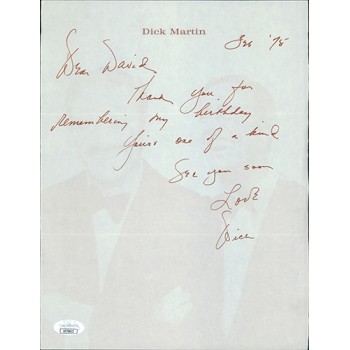 Dick Martin
Feb '75
Dear David,
Thank you for
remembering my birthday
You're one of a kind
See you soon
Love
Dick